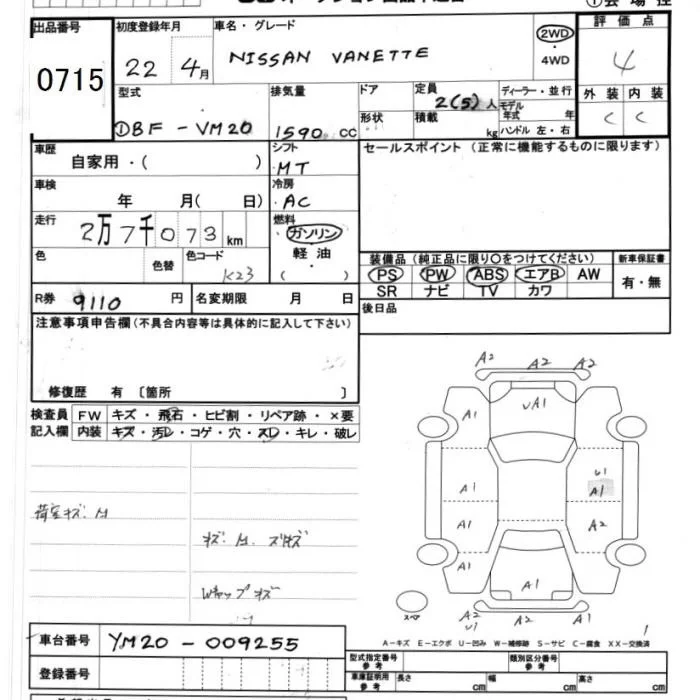 ① 会場控
出品番号
0715
初度登録年月
22 4月
車名・グレード
NISSAN VANETTE
2WD
・
4WD
評価点
4
外装 内装
C C
型式
①BF - VM20
排気量
1590 CC
ドア
形状
定員
2(5)人
積載 kg
ディーラー・並行
モデル
年式 年
ハンドル 左・右
車歴
自家用・( )
シフト
・MT
セールスポイント (正常に機能するものに限ります)
車検
年 月( 日)
冷房
・AC
走行
2万7千073 km
燃料
・ガソリン
軽油・
( )
色
色替
色コード
K23
装備品(純正品に限り○をつけてください)
新車保証書
PS PW ABS エアB AW
SR ナビ TV カワ
有・無
R券
9110 円
名変期限 月 日
後日品
注意事項申告欄(不具合内容等は具体的に記入して下さい)
修復歴 有 〔箇所 〕
検査員
記入欄
FW キズ・飛石・ヒビ割・リペア跡・×要
内装 キズ・汚レ・コゲ・穴・スレ・キレ・破レ
荷室キズ
Wキャップキズ
A2 A2 A2
A1 UA1 A1
A1 U1
A1
A1 A2
A1 A1 A1
スペア
A2 A2 A2
U1
A-キズ E-エクボ U-凹み W-補修跡 S-サビ C-腐食 XX-交換済
車台番号
YM20 - 009255
登録番号
型式指定番号
参考
類別区分番号
参考
車庫証明用
参考
長さ cm 幅 cm 高さ cm